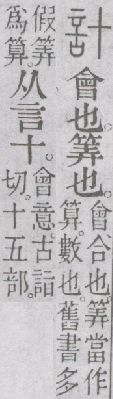 計 會也。筭也。會合也。筭當作算。數也。舊書多
假筭爲算。从言十。會意。古詣切。十五部。